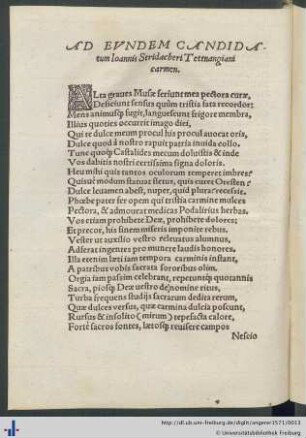 AD EVNDEM CANDIDA-
tum Ioannis Stridacheri Tettnangiani
carmen.
ALta graues Musæ feriunt mea pectora curæ,
Deficiunt sensus quũm tristia fata recordor:
Mens animusq; fugit, languescunt frigore membra,
Illius quoties occurrit imago diei,
Qui te dulce meum procul his procul auocat oris,
Dulce quod à nostro rapuit patria inuida collo.
Tunc quoq; Castalides mecum doluistis & inde
Vos dabitis nostri certissima signa doloris.
Heu mihi quis tantos oculorum temperet imbres?
Quisue modum statuat fletus, quis curet Oresten?
Dulce leuamen abest, nuper, quid plura? recessit.
Phœbe pater fer opem qui tristia carmine mulces
Pectora, & admoueat medicas Podalirius herbas.
Vos etiam prohibete Deæ, prohibete dolores:
Et precor, his sinem miseris imponite rebus.
Vester ut auxilio vestro releuatus alumnus,
Adferat ingentes pro munere laudis honores.
Illa etenim læti iam tempora carminis instant,
A patribus vobis sacrata sororibus olim.
Orgia iam passim celebrant, repetuntq; quotannis
Sacra, piosq; Deæ uestro de nomine ritus,
Turba frequens studijs sacrarum dedita rerum,
Quæ dulces versus, quæ carmina dulcia poscunt,
Rursus & insolito (mirum) tepefacta calore,
Fortè sacros fontes, lætosq; reuisere campos
Nescio
http://dl.ub.uni-freiburg.de/diglit/ungerer1571/0013
© Universitätsbibliothek Freiburg